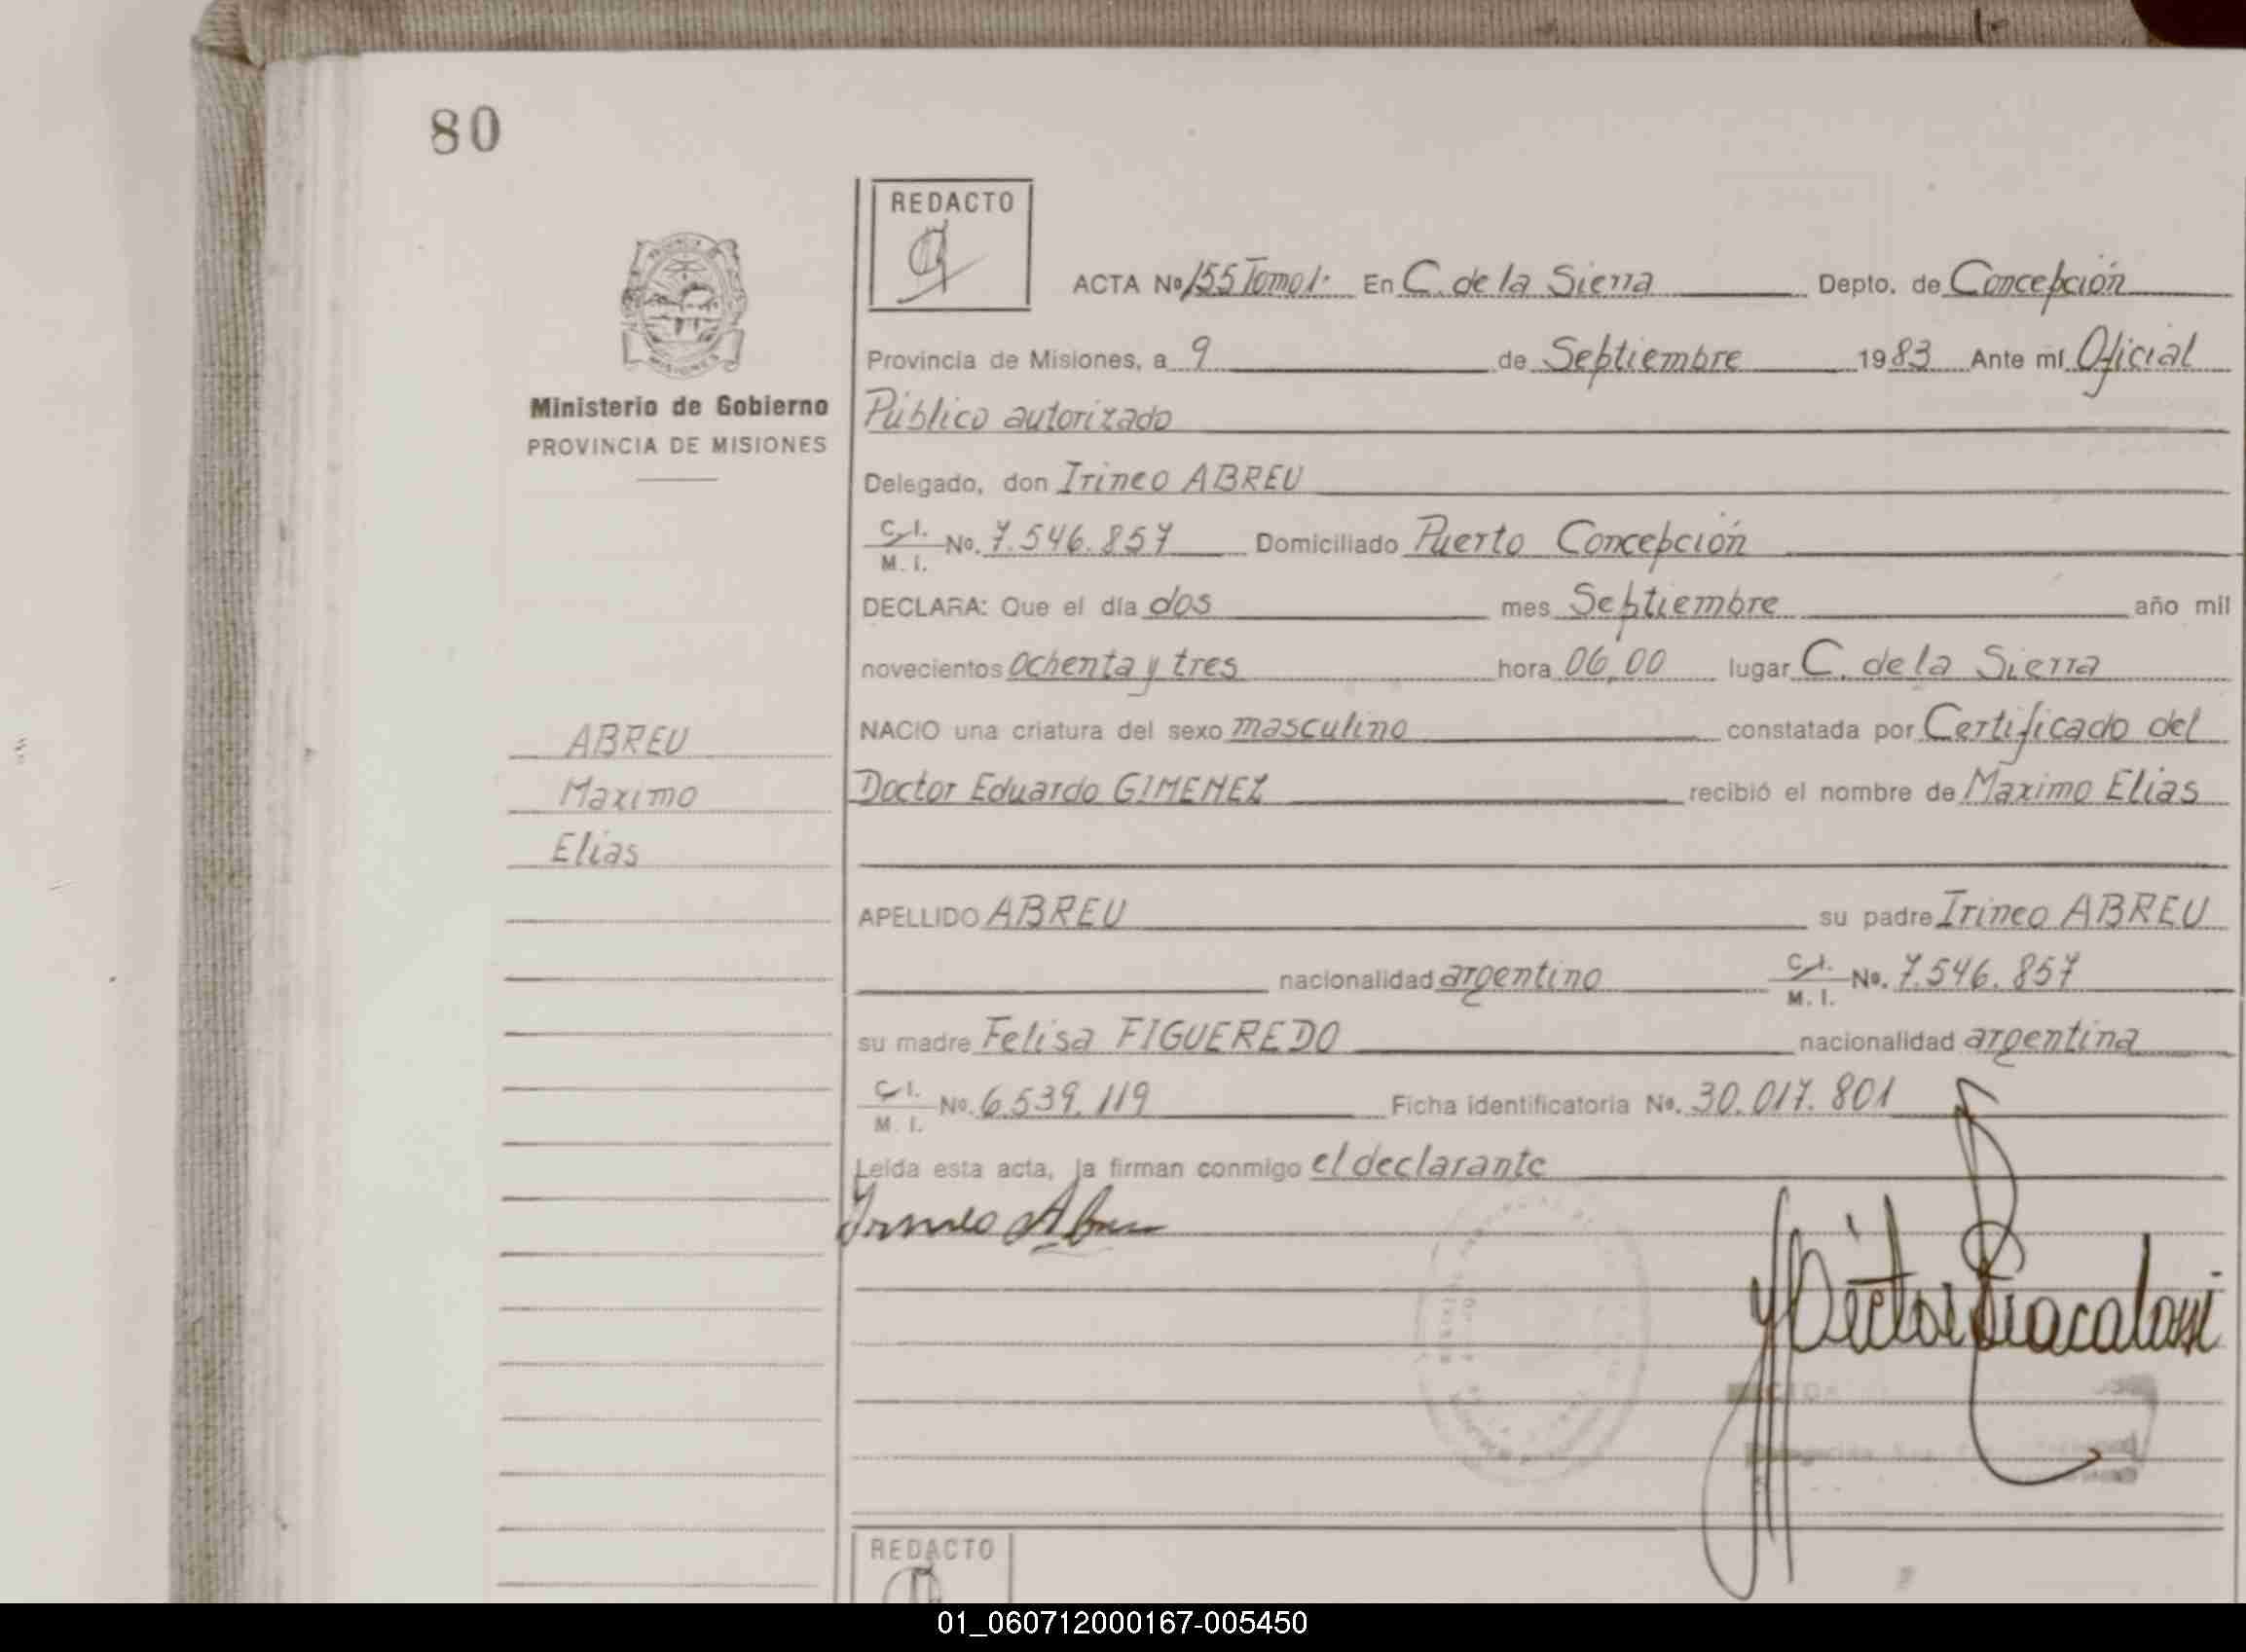 80
REDACTO
ACTA Nº 155 Tomo 1· En C. de la Sierra Depto. de Concepción
Provincia de Misiones, a 9 de Septiembre 1983 Ante mí Oficial
Público autorizado
Ministerio de Gobierno
PROVINCIA DE MISIONES
Delegado, don Irineo ABREU
C.I. M.I. No. 7.546.857 Domiciliado Puerto Concepción
DECLARA: Que el día dos mes Septiembre año mil
novecientos ochenta y tres hora 06,00 lugar C. de la Sierra
NACIO una criatura del sexo masculino constatada por Certificado del
Doctor Eduardo GIMENEZ recibió el nombre de Maximo Elias
ABREU
Maximo
Elias
APELLIDO ABREU su padre Irineo ABREU
nacionalidad argentino C.I. M.I. No. 7.546.857
su madre Felisa FIGUEREDO nacionalidad argentina
C.I. M.I. No. 6.539.119 Ficha identificatoria No. 30.017.801
Leída esta acta, la firman conmigo el declarante
Irineo Abreu
REDACTO
01_060712000167-005450